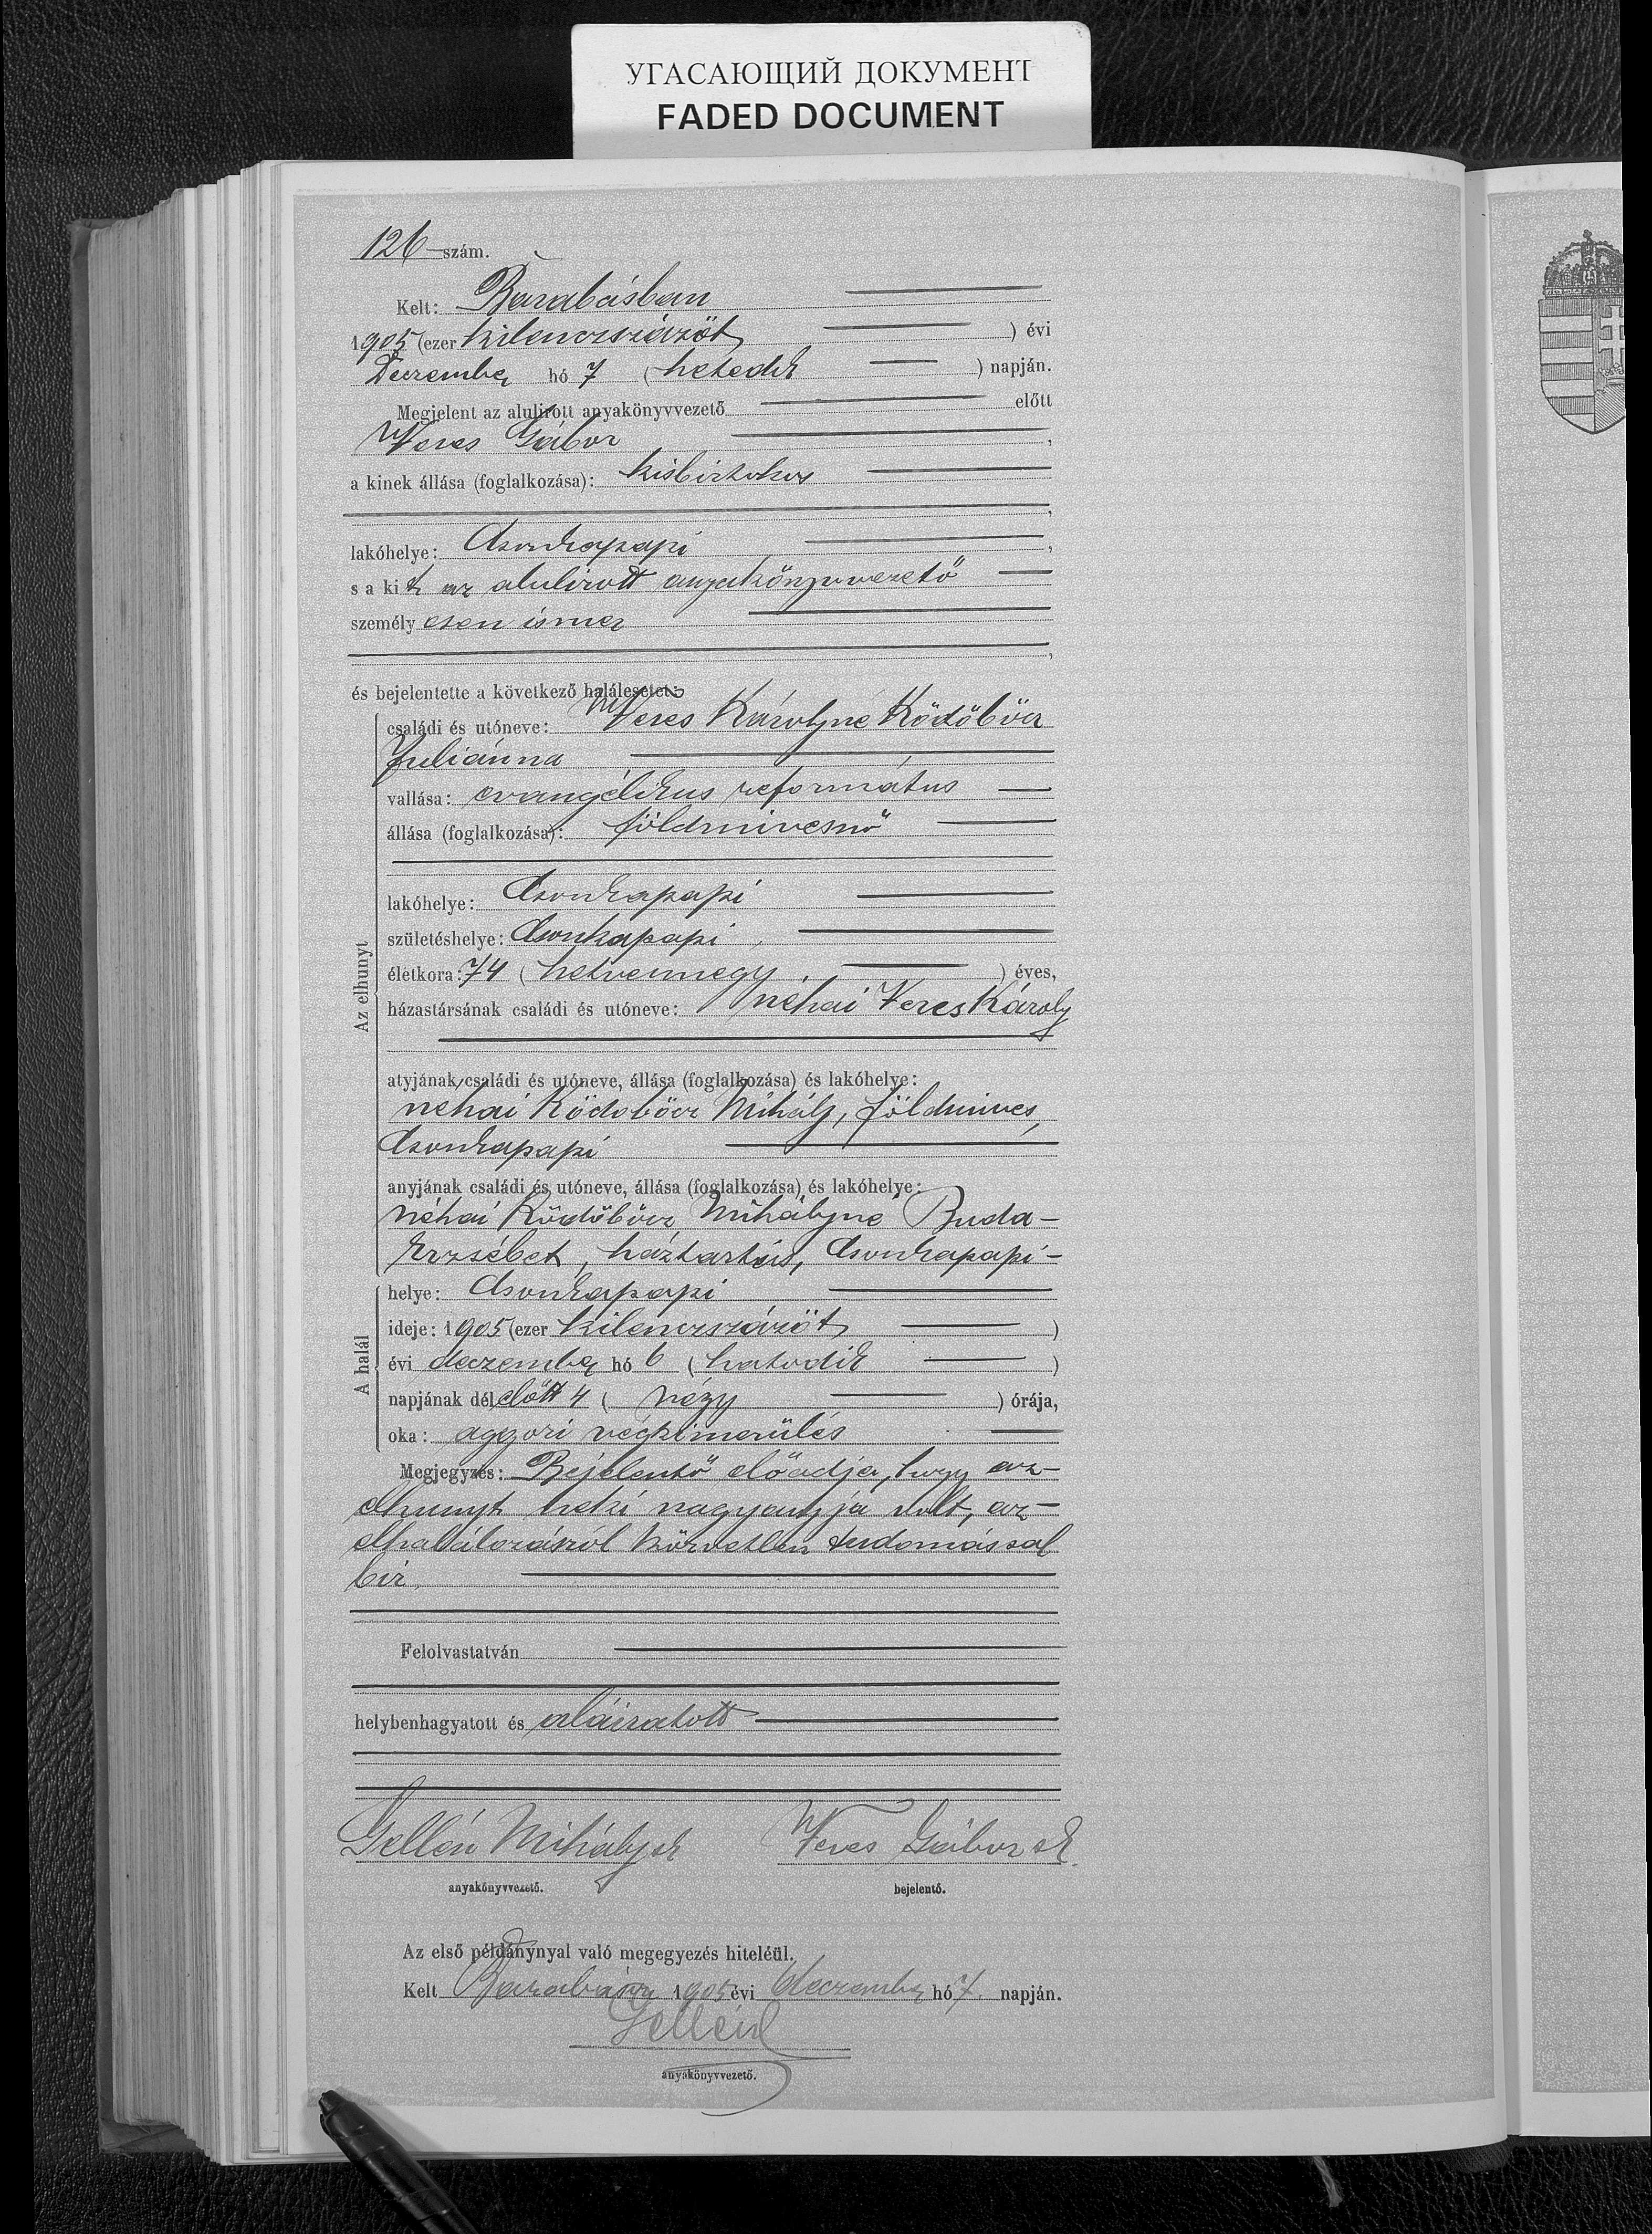 УГАСАЮЩИЙ ДОКУМЕНТ
FADED DOCUMENT
126 szám.
Kelt: Barabásban
1905 (ezer kilenczszázöt ) évi
Deczember hó 7 ( hetedik ) napján.
Megjelent az alulirott anyakönyvvezető előtt
Veres Gábor ,
a kinek állása (foglalkozása): kisbirtokos
,
lakóhelye: Csonkapapi ,
s a kit az alulirott anyakönyvvezető
személyesen ismer
,
és bejelentette a következő halálesetet:
családi és utóneve: Veres Károlyné Ködöböcz
Juliánna
vallása: evangélikus református
állása (foglalkozása): földmivesnő
lakóhelye: Csonkapapi
születéshelye: Csonkapapi ,
életkora: 74 ( hetvennegy ) éves,
házastársának családi és utóneve: néhai Veres Károly
Az elhunyt
atyjának családi és utóneve, állása (foglalkozása) és lakóhelye:
néhai Ködöböcz Mihály, földmives,
Csonkapapi
anyjának családi és utóneve, állása (foglalkozása) és lakóhelye:
néhai Ködöböcz Mihályné Buda-
Erzsébet, háztartás, Csonkapapi-
helye: Csonkapapi
ideje: 1905 (ezer kilenczszázöt )
évi deczember hó 6 ( hatodik )
A halál
napjának délelőtt 4 ( négy ) órája,
oka: aggkori végkimerülés
Megjegyzés: Bejelentő előadja, hogy az-
elhunyt neki nagyanyja volt, az-
elhalálozásról közvetlen tudomással
bir.
Felolvastatván
helybenhagyatott és aláiratott
Gellén Mihály sk Veres Gábor sk.
anyakönyvvezető. bejelentő.
Az első példánynyal való megegyezés hiteléül.
Kelt 1905 évi deczember hó 7. napján.
anyakönyvvezető.